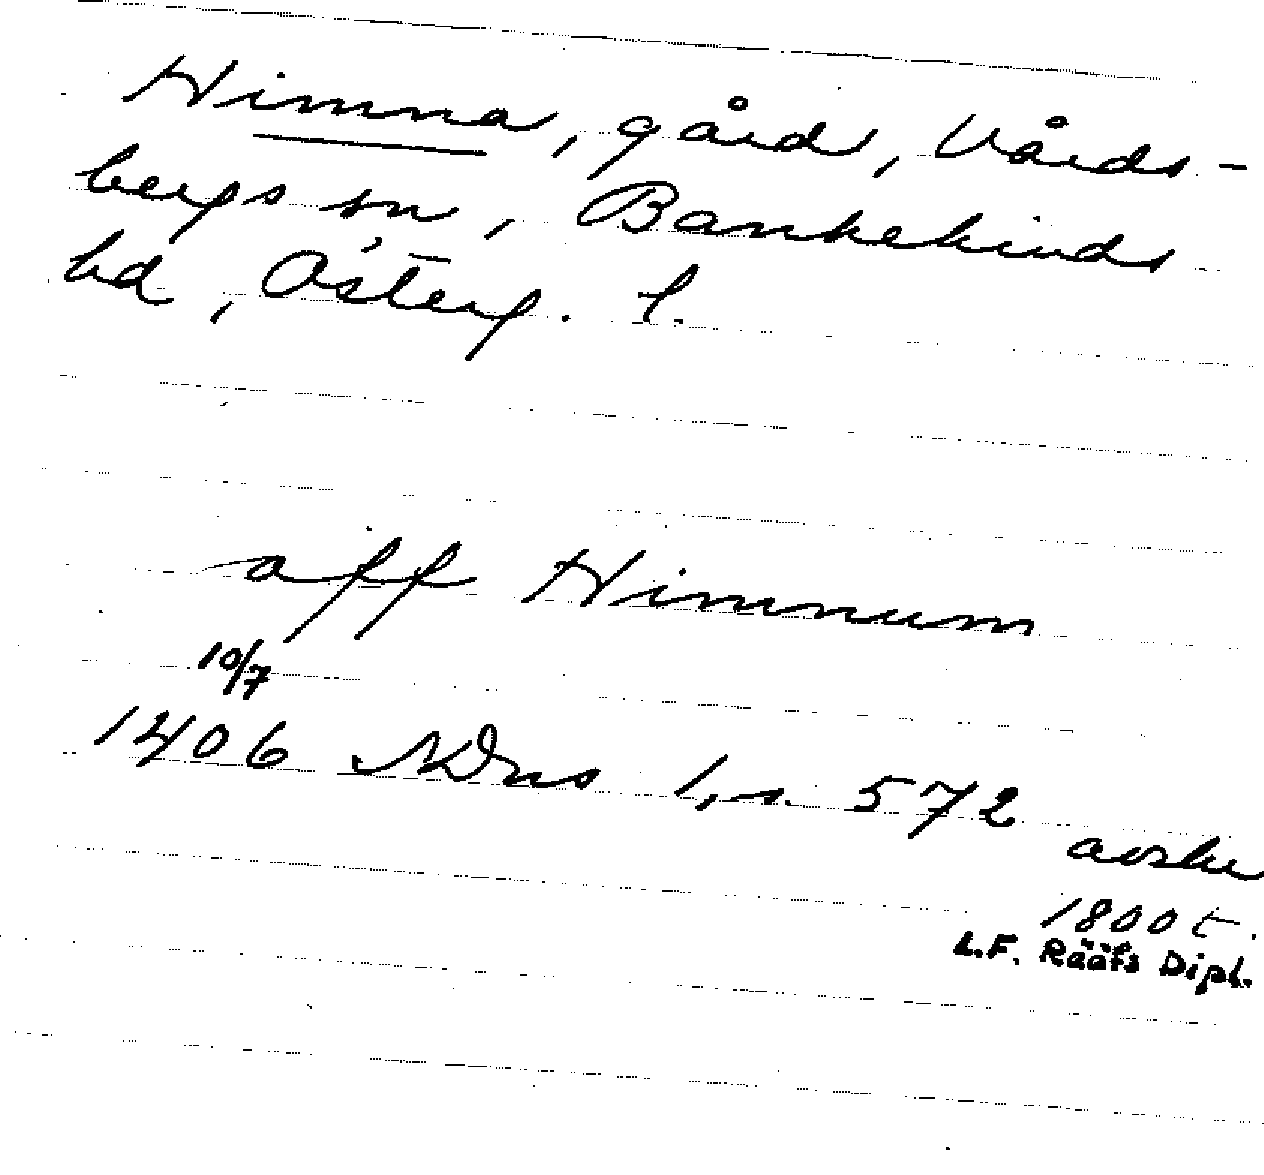 Himna, gård, Vårds-
bergs sn, Bankekinds
hd, Österg. l.
aff Himnum
10/7
1406 NDns 1, s. 572
avskr
1800 t.
L.F. Rääfs Dipl.